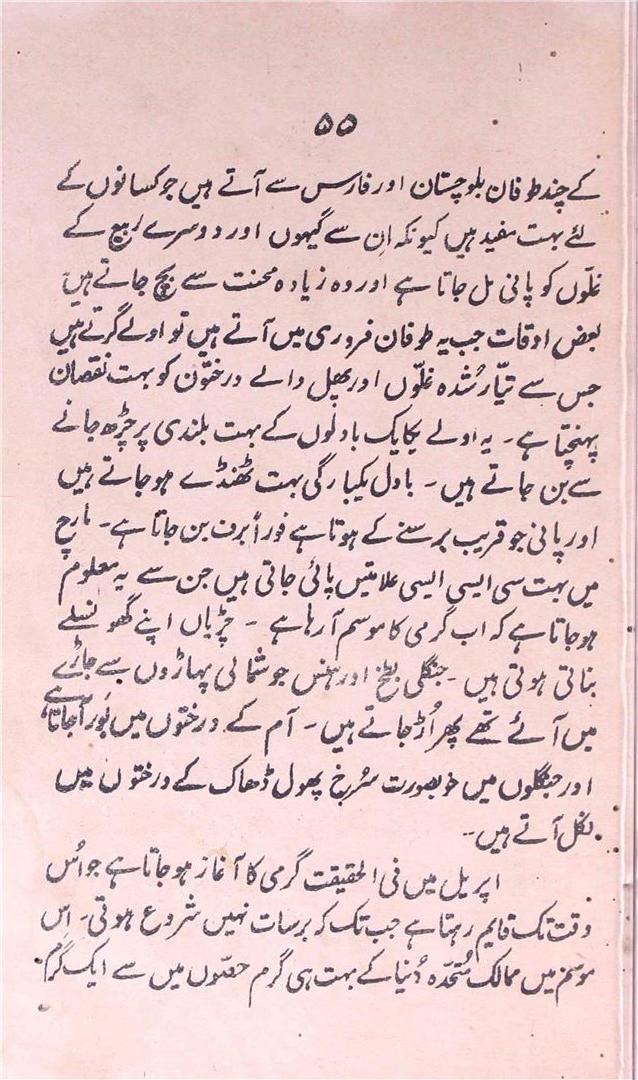 ۵۵
کے چند طوفان بلوچستان اور فارس سے آتے ہیں جو کسانوں کے
لئے بہت مفید ہیں کیونکہ اِن سے گیہوں اور دوسرے ربیع کے
غلّوں کو پانی مل جاتا ہے اور وہ زیادہ محنت سے بچ جاتے ہیں
بعض اوقات جب یہ طوفان فروری میں آتے ہیں تو اولے گرتے ہیں
جس سے تیّار شُدہ غلّوں اور پھل والے درختوں کو بہت نقصان
پہنچتا ہے۔ یہ اولے یکایک بادلوں کے بہت بلندی پر چڑھ جانے
سے بن جاتے ہیں۔ بادل یکبارگی بہت ٹھنڈے ہو جاتے ہیں
اور پانی جو قریب برسنے کے ہوتا ہے فوراً برف بن جاتا ہے۔ مارچ
میں بہت سی ایسی ایسی علامتیں پائی جاتی ہیں جن سے یہ معلوم
ہو جاتا ہے کہ اب گرمی کا موسم آ رہا ہے۔ چڑیاں اپنے گھونسلے
بناتی ہوتی ہیں۔ جنگلی بطخ اور ہنس جو شمالی پہاڑوں سے جاڑے
میں آئے تھے پھر اُڑ جاتے ہیں۔ آم کے درختوں میں بَور آ جاتا ہے
اور جنگلوں میں خوبصورت سُرخ پھول ڈھاک کے درختوں میں
نکل آتے ہیں۔
اپریل میں فی الحقیقت گرمی کا آغاز ہو جاتا ہے جو اُس
وقت تک قایم رہتا ہے جب تک کہ برسات نہیں شروع ہوتی۔ اِس
موسم میں ممالک مُتحدہ دُنیا کے بہت ہی گرم حصّوں میں سے ایک گرم